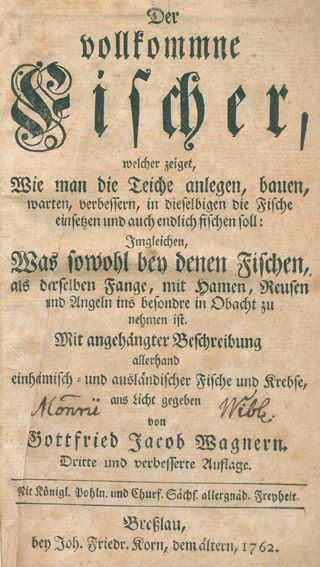 Der
vollkommne
Fischer,
welcher zeiget,
Wie man die Teiche anlegen, bauen,
warten, verbessern, in dieselbigen die Fische
einsetzen und auch endlich fischen soll:
Imgleichen,
Was sowohl bey denen Fischen,
als derselben Fange, mit Hamen, Reusen
und Angeln ins besondre in Obacht zu
nehmen ist.
Mit angehängter Beschreibung
allerhand
einheimisch- und ausländischer Fische und Krebse,
ans Licht gegeben
von
Gottfried Jacob Wagnern.
Dritte und verbesserte Auflage.
Mit Königl. Pohln. und Churf. Sächs. allergnäd. Freyheit.
Breßlau,
bey Joh. Friedr. Korn, dem ältern, 1762.